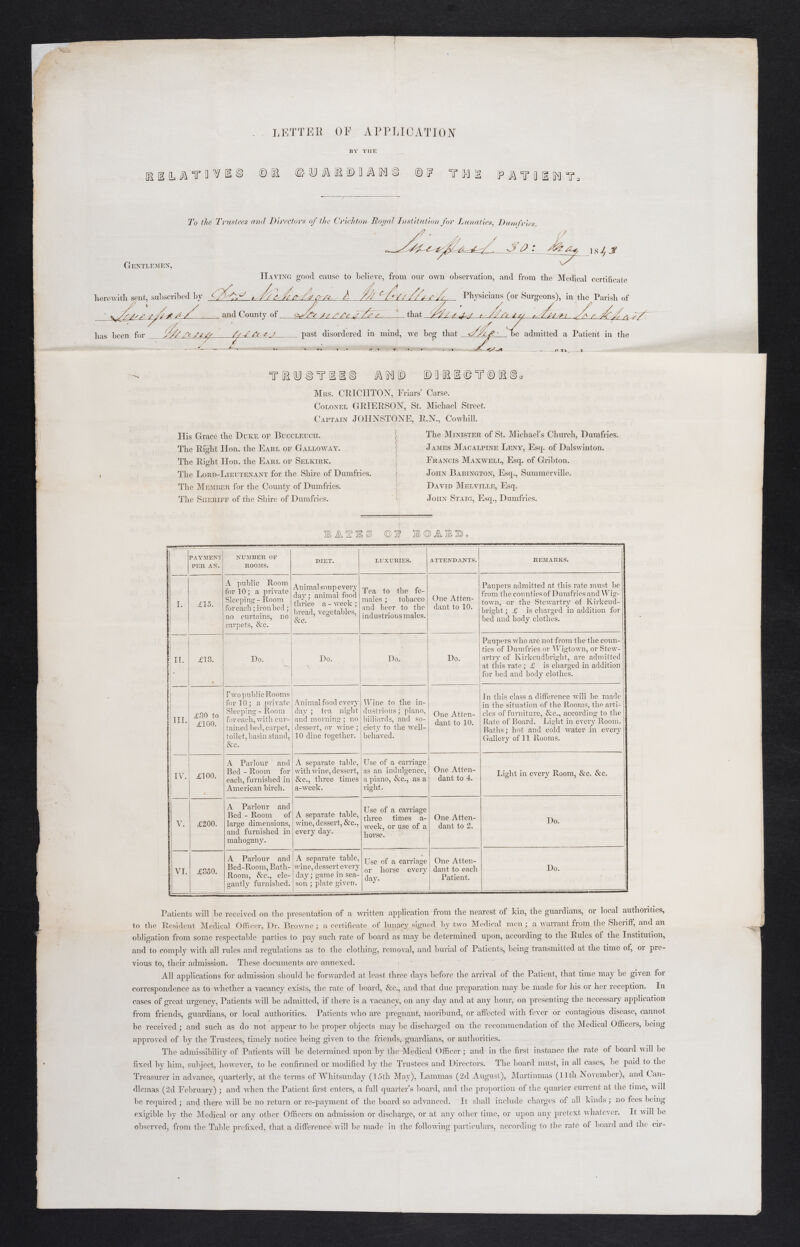 LETTER OF APPLICATION
BY THE
RELATIVES OR GUARDIANS OF THE PATIENT.
To the Trustees and Directors of the Crichton Royal Institution for Lunatics, Dumfries.
Liverpool 30: May 1843
GENTLEMEN,
HAVING good cause to believe, from our own observation, and from the Medical certificate
herewith sent, subscribed by Drs Nicholson & McCulloch Physicians (or Surgeons), in the Parish of
Liverpool and County of Lancaster that Miss Mary Ann Lockhart
has been for Many years past disordered in mind, we beg that She be admitted a Patient in the
TRUSTEES AND DIRECTORS.
MRS. CRICHTON, Friars' Carse.
COLONEL GRIERSON, St. Michael Street.
CAPTAIN JOHNSTONE, R.N., Cowhill.
His Grace the DUKE OF BUCCLEUCH.
The Right Hon. the EARL OF GALLOWAY.
The Right Hon. the EARL OF SELKIRK.
The LORD-LIEUTENANT for the Shire of Dumfries.
The MEMBER for the County of Dumfries.
The SHERIFF of the Shire of Dumfries.
The MINISTER of St. Michael's Church, Dumfries.
JAMES MACALPINE LENY, Esq. of Dalswinton.
FRANCIS MAXWELL, Esq. of Gribton.
JOHN BABINGTON, Esq., Summerville.
DAVID MELVILLE, Esq.
JOHN STAIG, Esq., Dumfries.
RATES OF BOARD.
PAYMENT PER AN.
NUMBER OF ROOMS.
DIET.
LUXURIES.
ATTENDANTS.
REMARKS.
I.
£15.
A public Room
for 10; a private
Sleeping-Room
for each; iron bed;
no curtains, no
carpets, &c.
Animal soup every
day; animal food
thrice a-week;
bread, vegetables,
&c.
Tea to the fe-
males; tobacco
and beer to the
industrious males.
One Atten-
dant to 10.
Paupers admitted at this rate must be
from the counties of Dumfries and Wig-
town, or the Stewartry of Kirkcud-
bright; £ is charged in addition for
bed and body clothes.
II.
£18.
Do.
Do.
Do.
Do.
Paupers who are not from the the coun-
ties of Dumfries or Wigtown, or Stew-
artry of Kirkcudbright, are admitted
at this rate; £ is charged in addition
for bed and body clothes.
III.
£30 to
£100.
Two public Rooms
for 10; a private
Sleeping-Room
for each, with cur-
tained bed, carpet,
toilet, basin stand,
&c.
Animal food every
day; tea night
and morning; no
dessert, or wine;
10 dine together.
Wine to the in-
dustrious; piano,
billiards, and so-
ciety to the well-
behaved.
One Atten-
dant to 10.
In this class a difference will be made
in the situation of the Rooms, the arti-
cles of furniture, &c., according to the
Rate of Board. Light in every Room.
Baths; hot and cold water in every
Gallery of 11 Rooms.
IV.
£100.
A Parlour and
Bed-Room for
each, furnished in
American birch.
A separate table,
with wine, dessert,
&c., three times
a-week.
Use of a carriage
as an indulgence,
a piano, &c., as a
right.
One Atten-
dant to 4.
Light in every Room, &c. &c.
V.
£200.
A Parlour and
Bed-Room of
large dimensions,
and furnished in
mahogany.
A separate table,
wine, dessert, &c.,
every day.
Use of a carriage
three times a-
week, or use of a
horse.
One Atten-
dant to 2.
Do.
VI.
£350.
A Parlour and
Bed-Room, Bath-
Room, &c., ele-
gantly furnished.
A separate table,
wine, dessert every
day; game in sea-
son; plate given.
Use of a carriage
or horse every
day.
One Atten-
dant to each
Patient.
Do.
Patients will be received on the presentation of a written application from the nearest of kin, the guardians, or local authorities,
to the Resident Medical Officer, Dr. Browne; a certificate of lunacy signed by two Medical men; a warrant from the Sheriff, and an
obligation from some respectable parties to pay such rate of board as may be determined upon, according to the Rules of the Institution,
and to comply with all rules and regulations as to the clothing, removal, and burial of Patients, being transmitted at the time of, or pre-
vious to, their admission. These documents are annexed.
All applications for admission should be forwarded at least three days before the arrival of the Patient, that time may be given for
correspondence as to whether a vacancy exists, the rate of board, &c., and that due preparation may be made for his or her reception. In
cases of great urgency, Patients will be admitted, if there is a vacancy, on any day and at any hour, on presenting the necessary application
from friends, guardians, or local authorities. Patients who are pregnant, moribund, or affected with fever or contagious disease, cannot
be received; and such as do not appear to be proper objects may be discharged on the recommendation of the Medical Officers, being
approved of by the Trustees, timely notice being given to the friends, guardians, or authorities.
The admissibility of Patients will be determined upon by the Medical Officer; and in the first instance the rate of board will be
fixed by him, subject, however, to be confirmed or modified by the Trustees and Directors. The board must, in all cases, be paid to the
Treasurer in advance, quarterly, at the terms of Whitsunday (15th May), Lammas (2d August), Martinmas (11th November), and Can-
dlemas (2d February); and when the Patient first enters, a full quarter's board, and the proportion of the quarter current at the time, will
be required; and there will be no return or re-payment of the board so advanced. It shall include charges of all kinds; no fees being
exigible by the Medical or any other Officers on admission or discharge, or at any other time, or upon any pretext whatever. It will be
observed, from the Table prefixed, that a difference will be made in the following particulars, according to the rate of board and the cir-